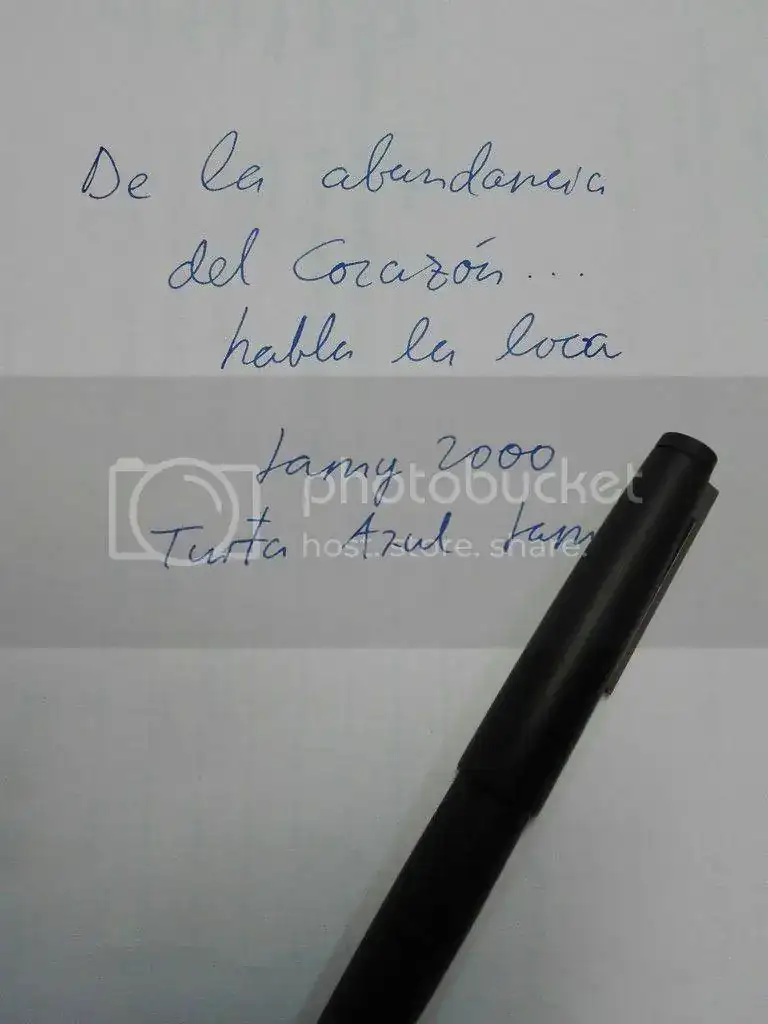 De la abundancia
del Corazón...
habla la loca
Lamy 2000
photobucket
Tinta Azul Lam
host. store. share.